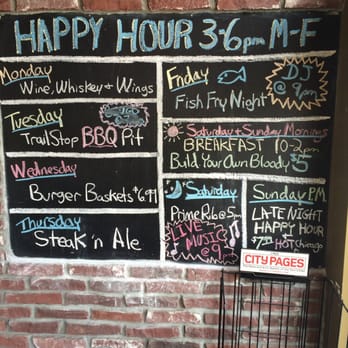 HAPPY HOUR 3-6pm M-F
Monday
Wine, Whiskey & Wings
Tuesday
TrailStop BBQ Pit
Wednesday
Burger Baskets $6.99
Thursday
Steak 'n Ale
Friday
Fish Fry Night
DJ
@ 9pm
Saturday & Sunday Mornings
BREAKFAST 10-2pm
Build Your Own Bloody $5
Saturday
Prime Rib @ 5pm
LIVE
MUSIC
@ 9
Sunday P.M.
LATE NIGHT
HAPPY HOUR
HOT Chicago
CITY PAGES